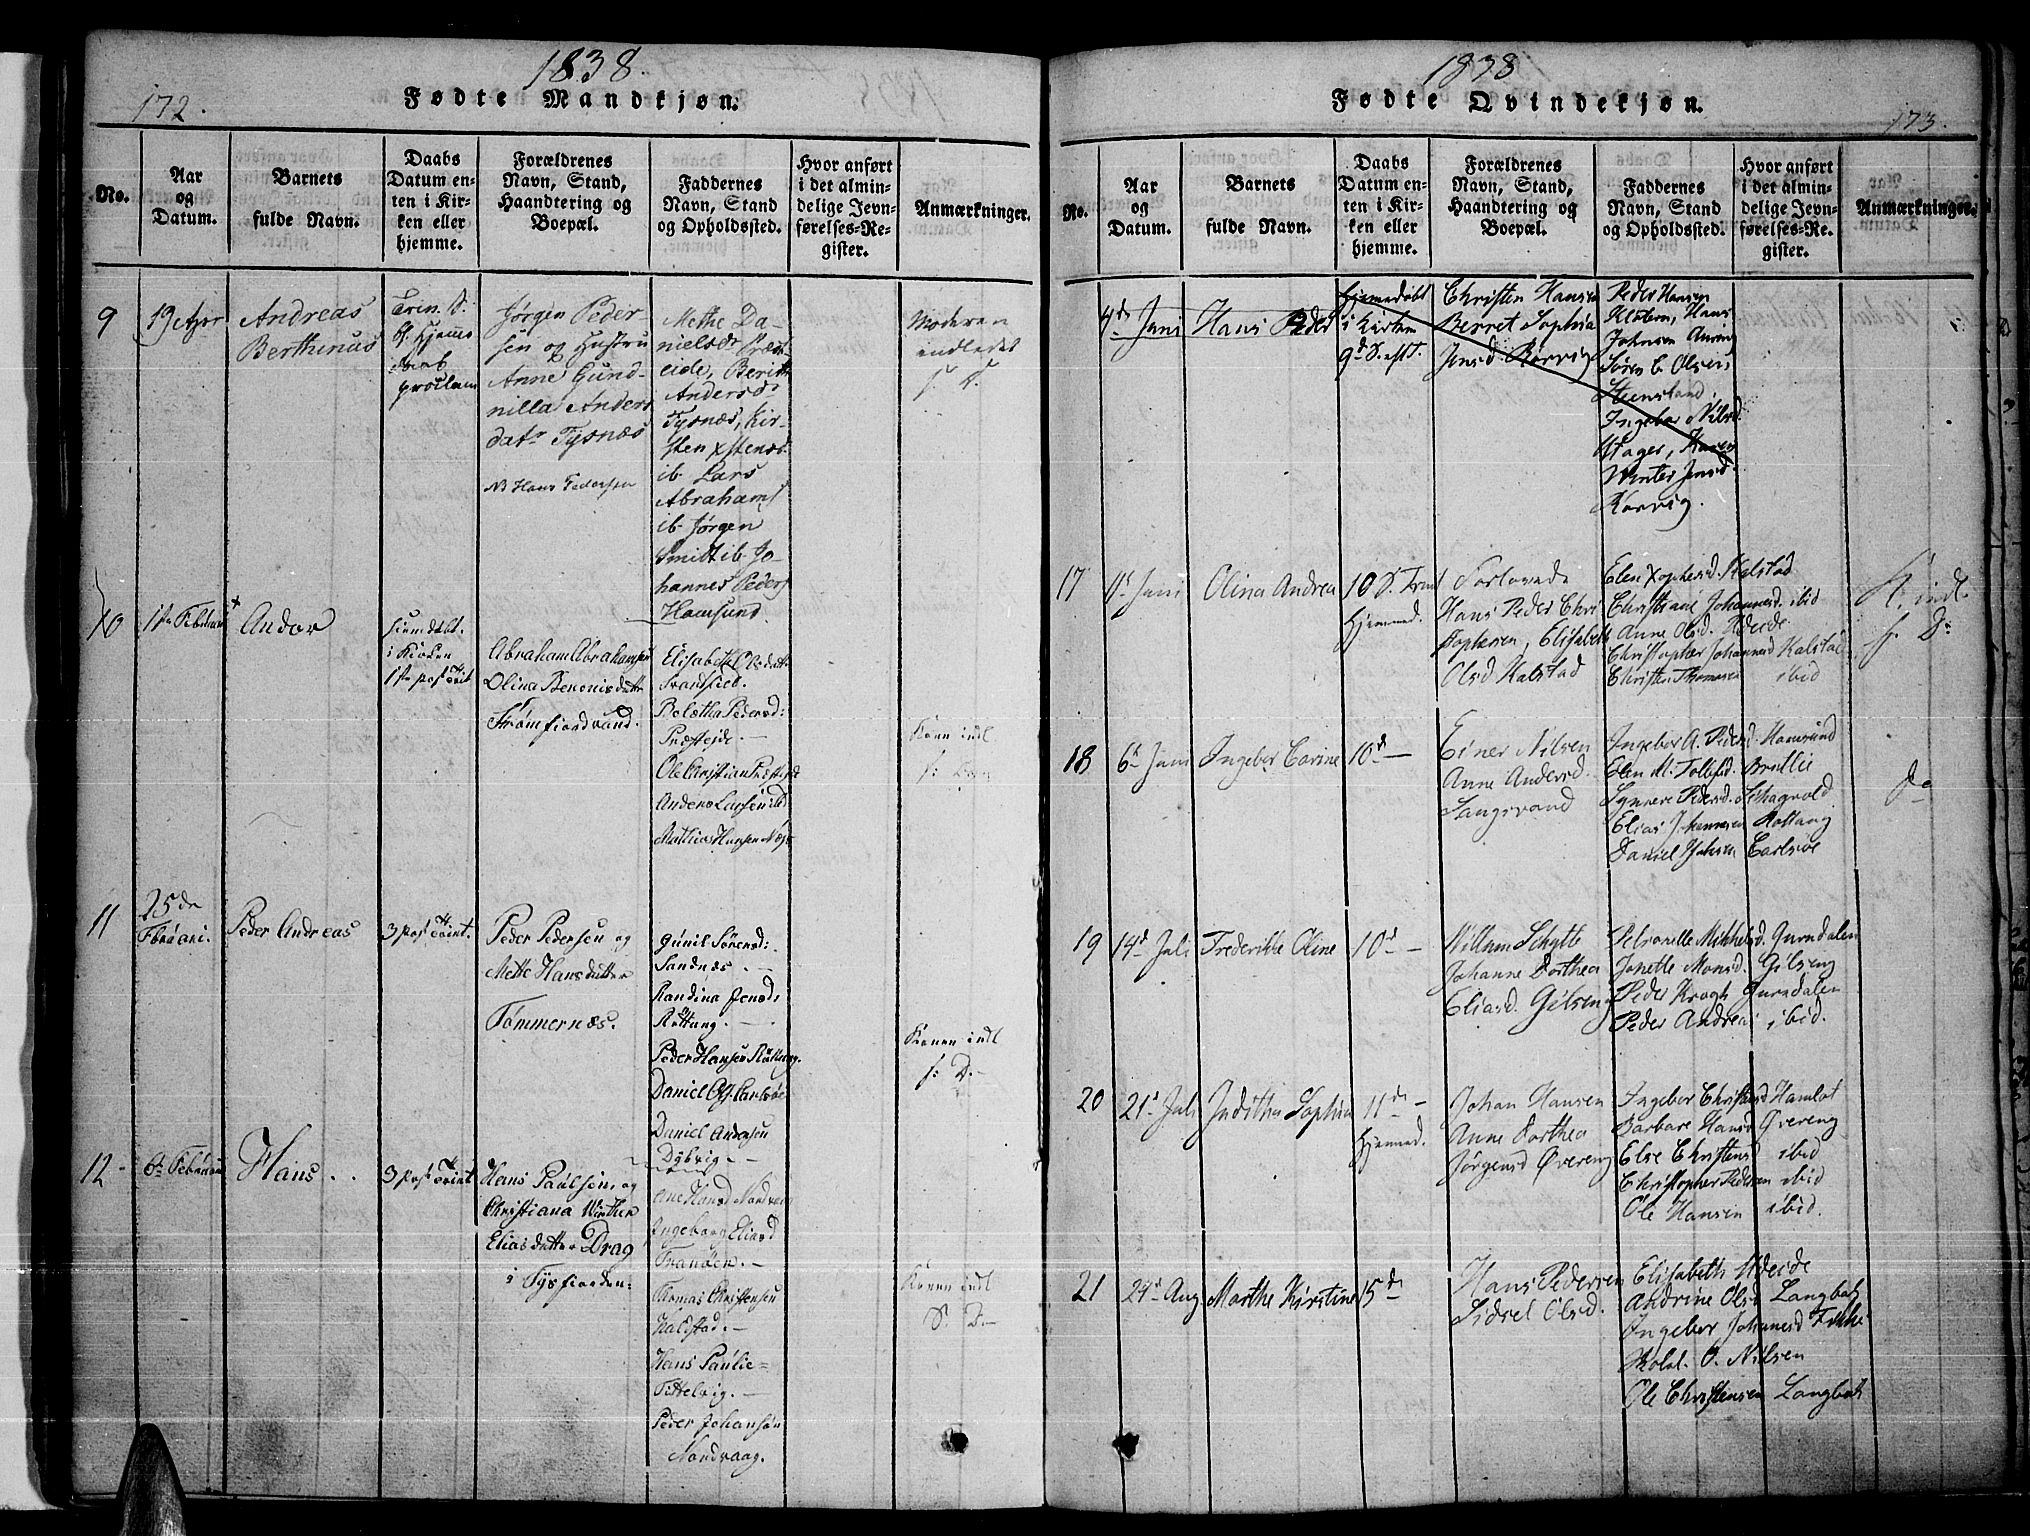 1838.
172.
Fødte Mandkjøn.
No.
Aar
og
Datum.
Barnets
fulde Navn.
Daabs
Datum en-
ten i Kir-
ken eller
hjemme.
Forældrenes
Navn, Stand,
Haandtering og
Boepæl.
Faddernes
Navn, Stand
og Opholdssted.
Hvor anført
i det almin-
delige Jevn-
førelses-Re-
gister.
Anmærkninger.
9
19 Apr
Andreas
Berthinus
Jørgen Peder-
sen og Hustru
Anne Gund-
nilla Anders
datr Tysnæs
NB Hans Pedersen
Methe Da-
nielsdr Præst-
eide, Berith
Andersdr
Tysnæs, Kir-
sten
ib. Lars
Abrahams
ib. Jørgen
Smitt ib. Jo-
hannes Peders
Hamsund.
Moderen
indledet
f. D.
10
1ste Februar
Andor
hjemdøbt
i Kirken
1ste post Trint
Abraham Abrahamsen
Olina Benonisdatter
Strømfiordvand.
Elisabeth Olsdatter
Beletha Pedersd:
Præsteide.
Ole Christian Præsteid
Anders Larsen ibd
Mathias Hansen Næs
Konen indl
f: Dagen
11
25de
Februari.
Peder Andreas
3 post Trint.
Peder Pedersen og
Mette Hansdatter
Tømmernæs.
Gunil Sørensd:
Sandnæs.
Randina Jensd:
Rottang.
Peder Hansen Rottang.
Daniel Carlsøe
Daniel Andersen
Dybvig.
Konen indl
f: D.
12
6te Februar
Hans
3 post Trint
Hans Paulsen, og
Christiana Winther
Eliasdatter Drag
i Tysfiorden:
Ane Hansd Nordvaag
Ingeborg Eliasd
Tranøen.
Thomas Christensen
Kalstad.
Hans Paulie-
Tittelvig.
Peder Johansøn
Nordvaag.
Konen indl
f. D.
1838
173.
Fødte Qvindekjøn.
No.
Aar
og
Datum.
Barnets
fulde Navn.
Daabs
Datum en-
ten i Kir-
ken eller
hjemme.
Forældrenes
Navn, Stand,
Haandtering og
Boepæl.
Faddernes
Navn, Stand
og Opholdssted.
Hvor anført
i det almin-
delige Jevn-
førelses-Re-
gister.
Anmærkninger.
4de Juni
Hans Peder
Hjemedøbt
i Kirken
9d S. eft T.
Christen Hansen
Berret Sophia
Jensd Korvig
Peder Hansen
Hans
Johnsen
Søren C. Olsen
Steensland
Ingebor Nilsd
Hager, Karen
Winter Jensd
Korvig.
17
11te Juni
Olina Andrea
10 S. Trint
Hjemmed.
Forlovede
Hans Peder Chri
stophersen, Elisabeth
Olsd Kalstad
Elen Xophersd. Kalstad
Christiane Johannesd. ibid
Anne Olsd.
Christopher Johannesd Kalstad
Christen Thomesen ibid
K. indl.
f. D.
18
6te Juni
Ingebor Carine
10d
Einer Nilsen
Anne Andersd.
Langsvand
Ingebor A. Pedersd Hamsund
Elen M. Tollefsd.
Synnere Pedersd. Skagvold
Elias Johannesen Rottang
Daniel Johsen Carlsøe
do
19
14d Juli
Frederikke Oline
10d
Willum Schytte
Johanne Dorthea
Eliasd. Gilseng
Petronelle Mikkelsd. Qurndalen
Jonette Monsd. Gilseng
Peder Krogh Qurndalen
Peder Andreas ibid.
20
21d Juli
Juditha Sophia
11de
Hjemmed.
Johan Hansen
Anne Dorthea
Jørgensd Øvereng
Ingebor Christensd Hamlot
Barbare Hansd Øvereng
Else Christensd ibid
Christopher Pedersen ibid
Ole Hansen ibid.
21
29d Aug
Marthe Kirstine
15de
Hans Pedersen
Sidsel Olsd.
Elisabeth
Andrine Olsd Langbak
Ingebor Johannesd
O. Nilsen
Ole Christensen Langbak